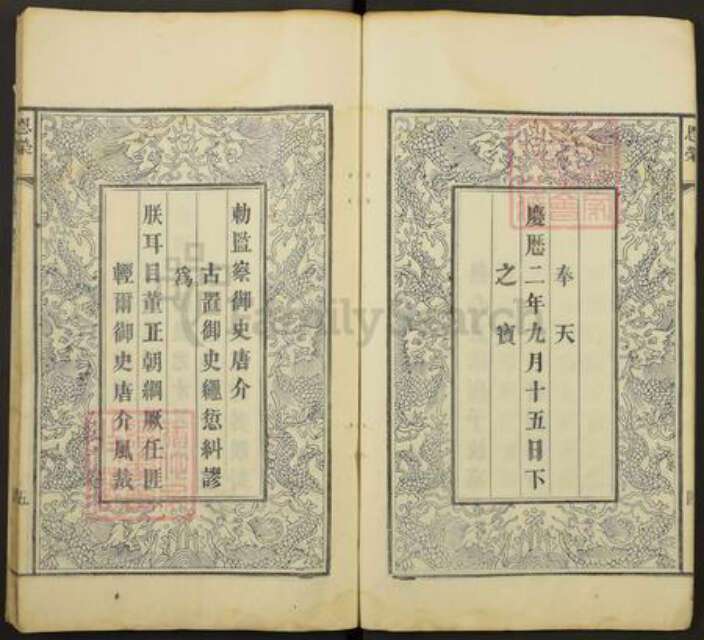 奉天
慶曆二年九月十五日下
之寶
恩榮
勅監察御史唐介
古置御史繩愆糾謬
爲
朕耳目董正朝綱厥任匪
輕爾御史唐介風裁
五
FamilySearch